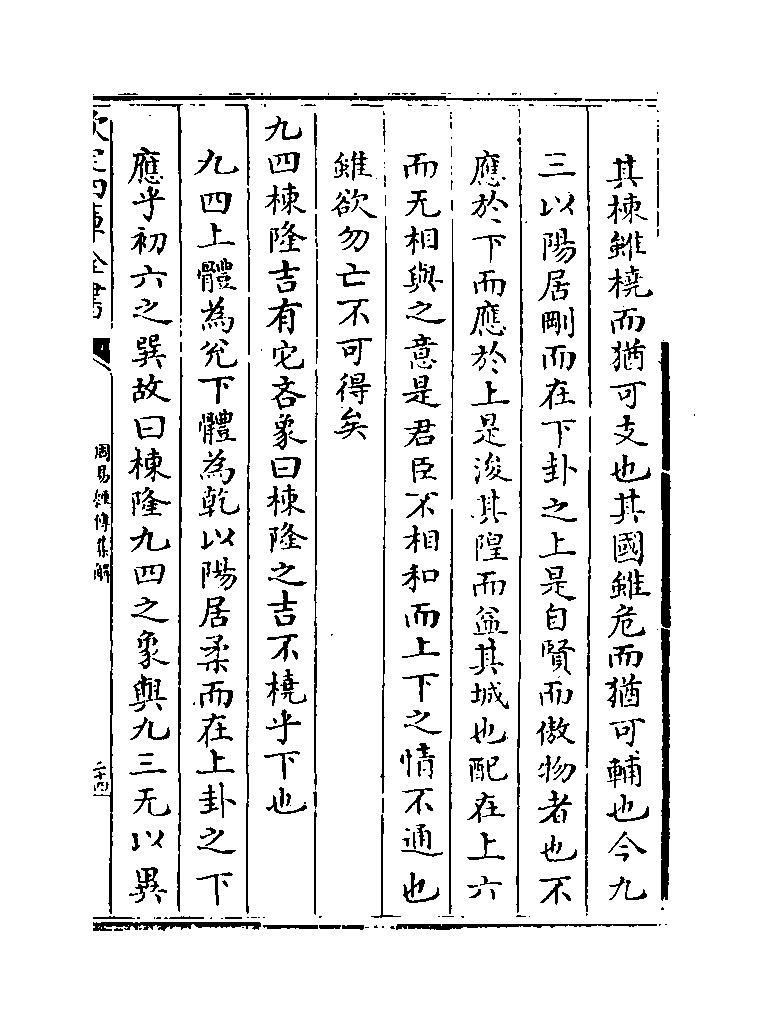 其棟雖橈而猶可支也其國雖危而猶可輔也今九
三以陽居剛而在下卦之上是自賢而傲物者也不
應於下而應於上是浚其隍而益其城也配在上六
而无相與之意是君臣不相和而上下之情不通也
雖欲勿亡不可得矣
九四棟隆吉有它吝象曰棟隆之吉不橈乎下也
九四上體為兊下體為乾以陽居柔而在上卦之下
應乎初六之巽故曰棟隆九四之象與九三无以異
欽定四庫全書
周易經傳集解
二十四